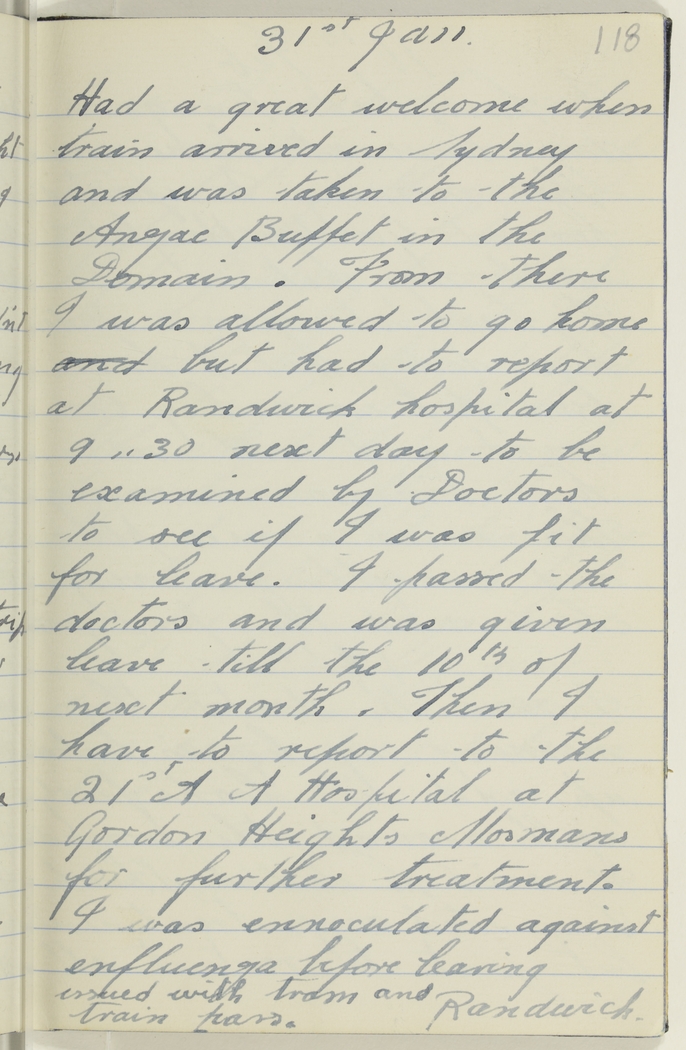 118
31st Jan.
Had a great welcome when
train arrived in Sydney
and was taken to the
Anzac Buffet in the
Domain. From there
I was allowed to go home
and but had to report
at Randwick hospital at
9..30 next day to be
examined by Doctors
to see if I was fit
for leave. I passed the
doctors and was given
leave till the 10th of
next month. Then I
have to report to the
21st A A Hospital at
Gordon Heights Mosmans
for further treatment.
I was ennoculated against
enfluenza before leaving
Randwick.
issued with tram and
train pass.